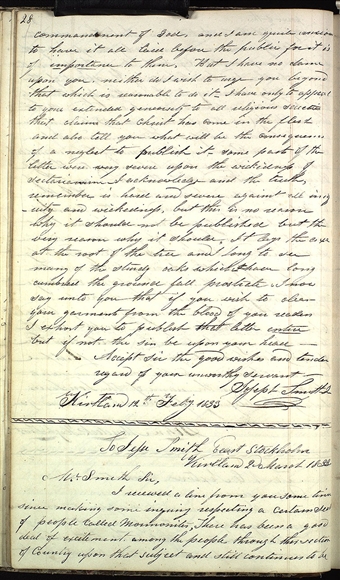 28
commandment of God. and I am quite anxious
to have it all laid before the public for it is
of importance to them. But I have no claim
upon you. neither do I wish to urge you beyond
that which is reasonable to do it. I have only to appeal
to your extended generosity to all religious societies
that claims that Christ has come in the flesh
and also tell you what will be the consequence
of a neglect to publish it some part of the
letter were very severe upon the wickedness of
sectarianism I acknowledge and the truth,
remember is hard and severe against all iniq
uity and wickedness, but this is no reason
why it should not be published but the
very reason why it should. It lays the axe
at the root of the tree and long to see
many of the sturdy oaks which have long
cumbered the ground fall prostrate I now
say unto you that if you wish to clear
your garments from the blood of your readers
I exhort you to publish that letter entire
but if not the sin be upon your head —
Accept Sir the good wishes and tender
regard of your unworthy servant
Joseph Smith Jr
Kirtland 12th Feby 1833
To Jesse Smith East Stockholm
Kirtland 2 March 1833
Mr Smith Sir,
I received a line from you some time
since making some enquiry respecting a certain Sect
of people called Mormonites, There has been a good
deal of excitement among the people through this section
of Country upon that subject and still continues to be